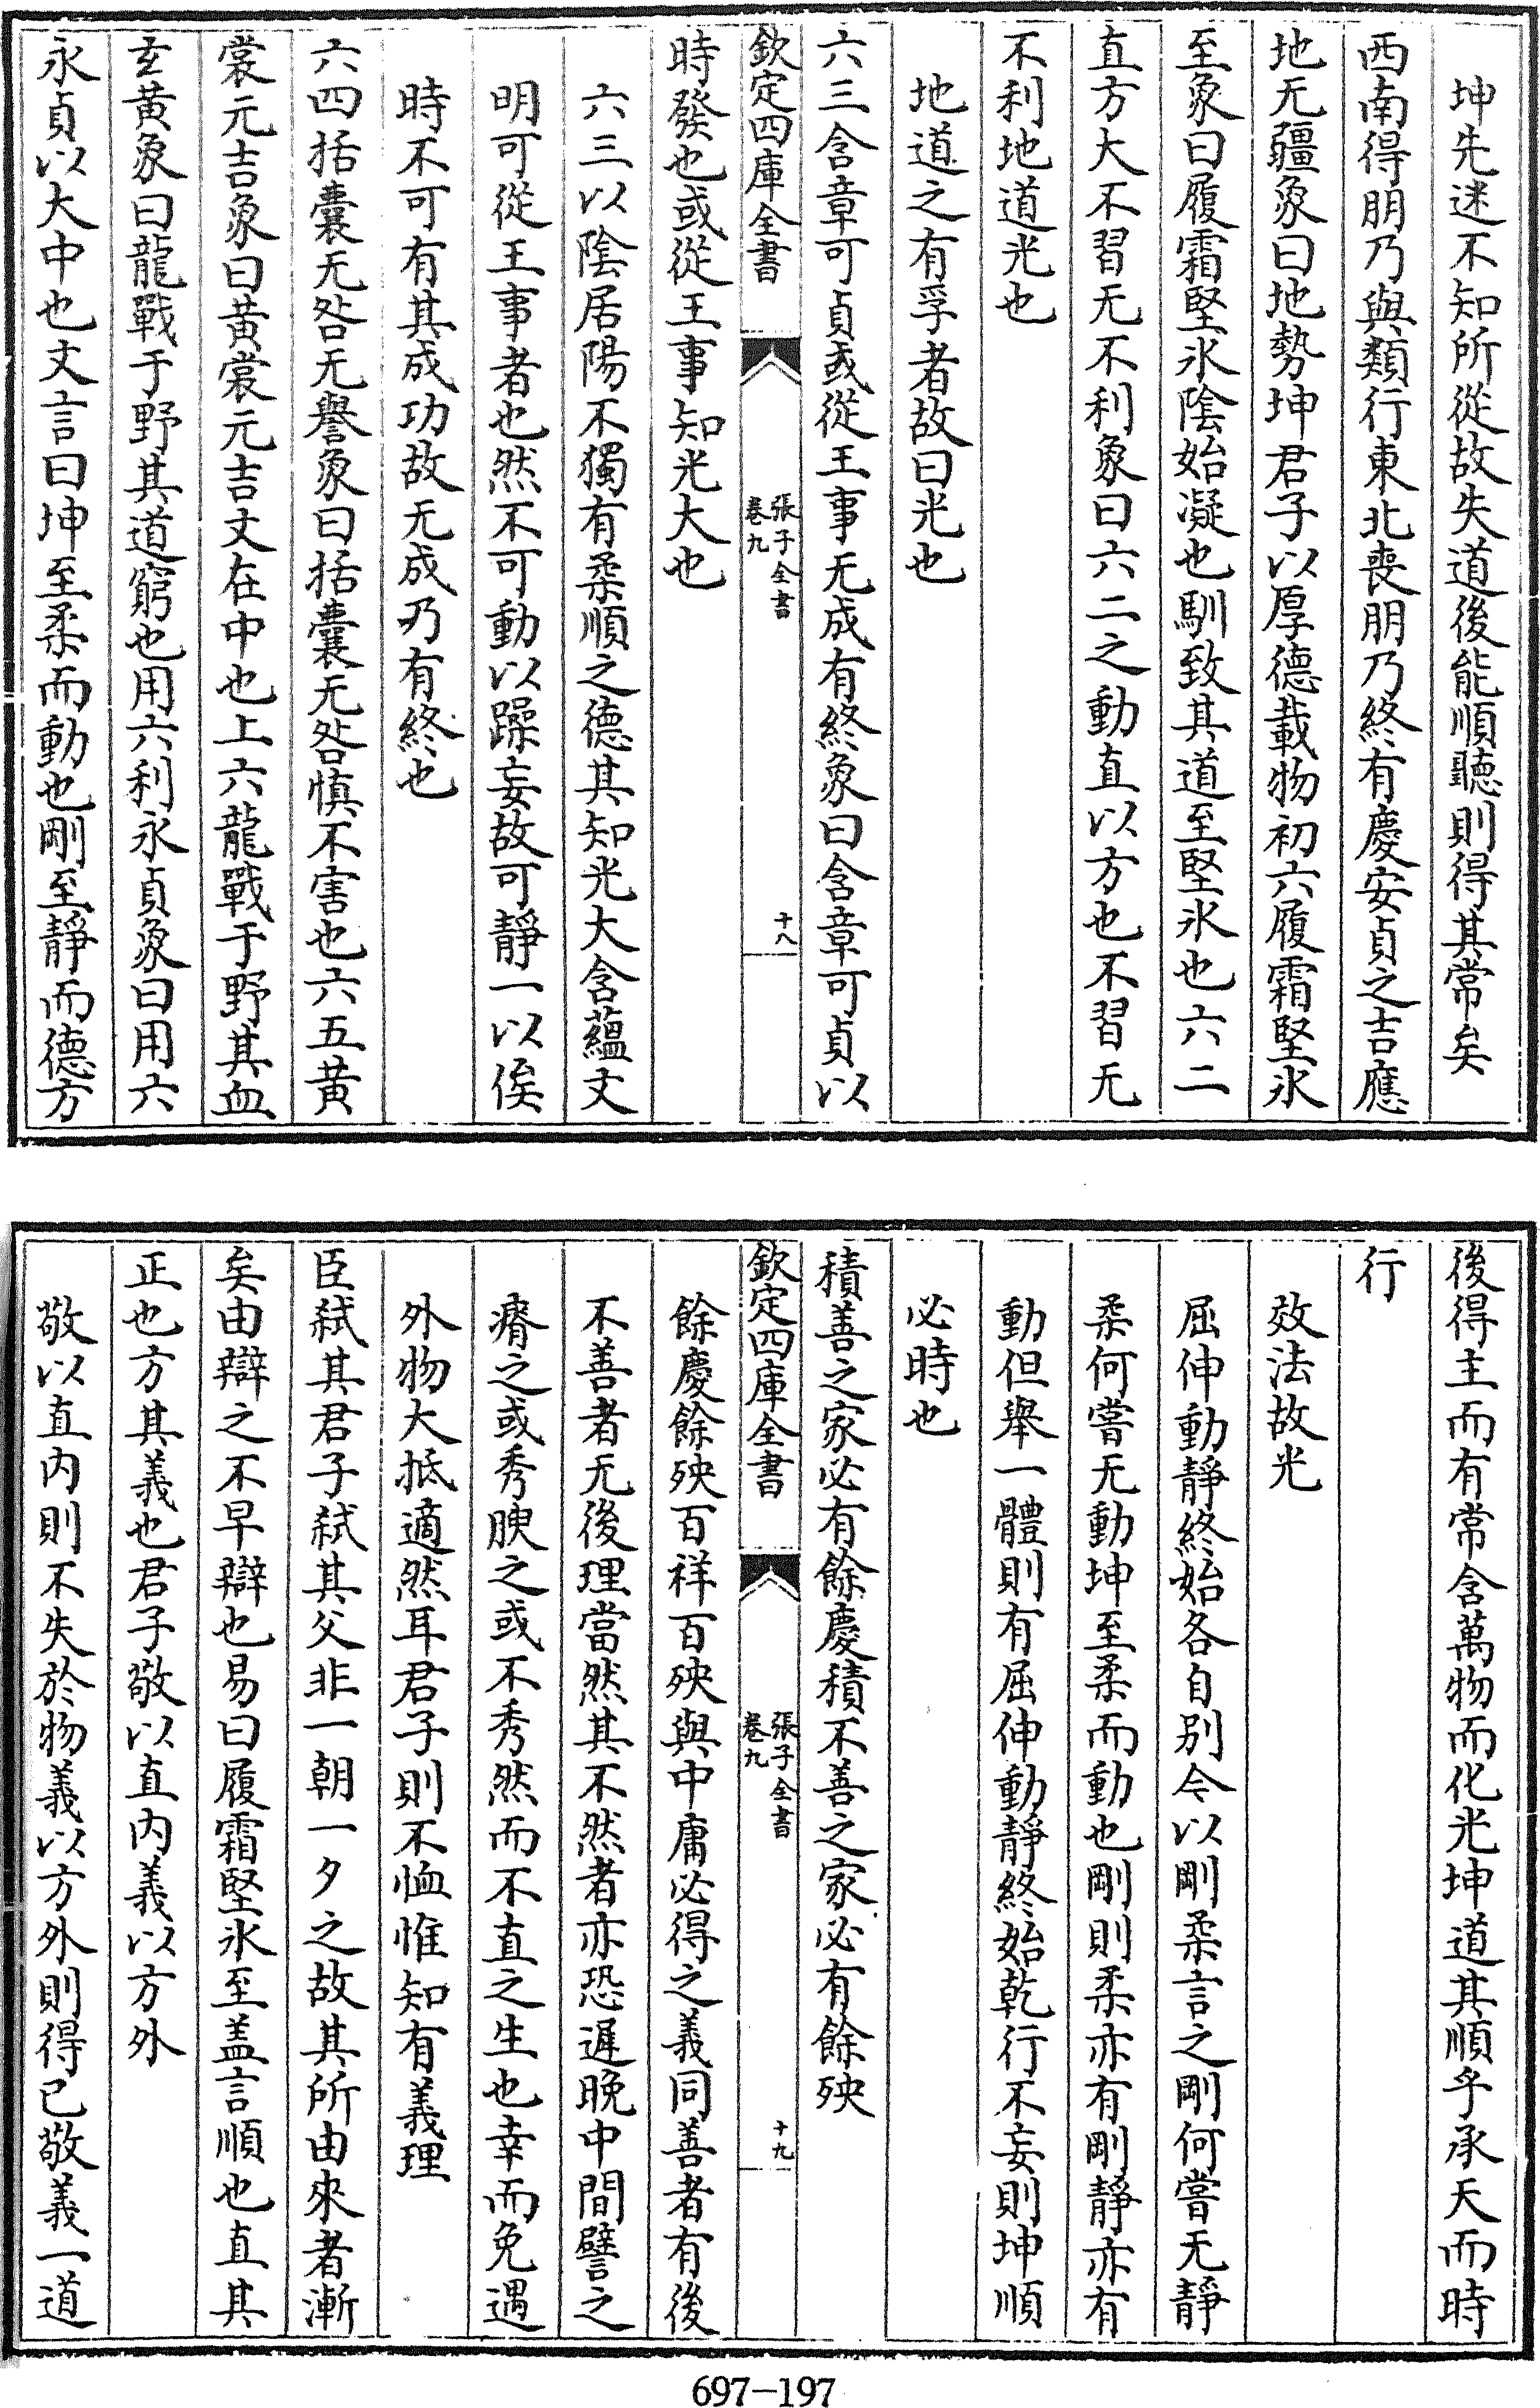 坤先迷不知所從故失道後能順聽則得其常矣
西南得朋乃與類行東北喪朋乃終有慶安貞之吉應
地无疆象曰地勢坤君子以厚德載物初六履霜堅氷
至象曰履霜堅氷陰始凝也馴致其道至堅氷也六二
直方大不習无不利象曰六二之動直以方也不習无
不利地道光也
地道之有孚者故曰光也
六三含章可貞或從王事无成有終象曰含章可貞以
欽定四庫全書
張子全書
卷九
十八
時發也或從王事知光大也
六三以陰居陽不獨有柔順之德其知光大含蘊文
明可從王事者也然不可動以躁妄故可靜一以俟
時不可有其成功故无成乃有終也
六四括囊无咎无譽象曰括囊无咎慎不害也六五黃
裳元吉象曰黃裳元吉文在中也上六龍戰于野其血
玄黃象曰龍戰于野其道窮也用六利永貞象曰用六
永貞以大中也文言曰坤至柔而動也剛至靜而德方
後得主而有常含萬物而化光坤道其順乎承天而時
行
效法故光
屈伸動靜終始各自別今以剛柔言之剛何嘗无靜
柔何嘗无動坤至柔而動也剛則柔亦有剛靜亦有
動但舉一體則有屈伸動靜終始乾行不妄則坤順
必時也
積善之家必有餘慶積不善之家必有餘殃
欽定四庫全書
張子全書
卷九
十九
餘慶餘殃百祥百殃與中庸必得之義同善者有後
不善者无後理當然其不然者亦恐遲晚中間譬之
瘠之或秀腴之或不秀然而不直之生也幸而免遇
外物大抵適然耳君子則不恤惟知有義理
臣弑其君子弑其父非一朝一夕之故其所由來者漸
矣由辯之不早辯也易曰履霜堅氷至盖言順也直其
正也方其義也君子敬以直内義以方外
敬以直内則不失於物義以方外則得已敬義一道
697-197